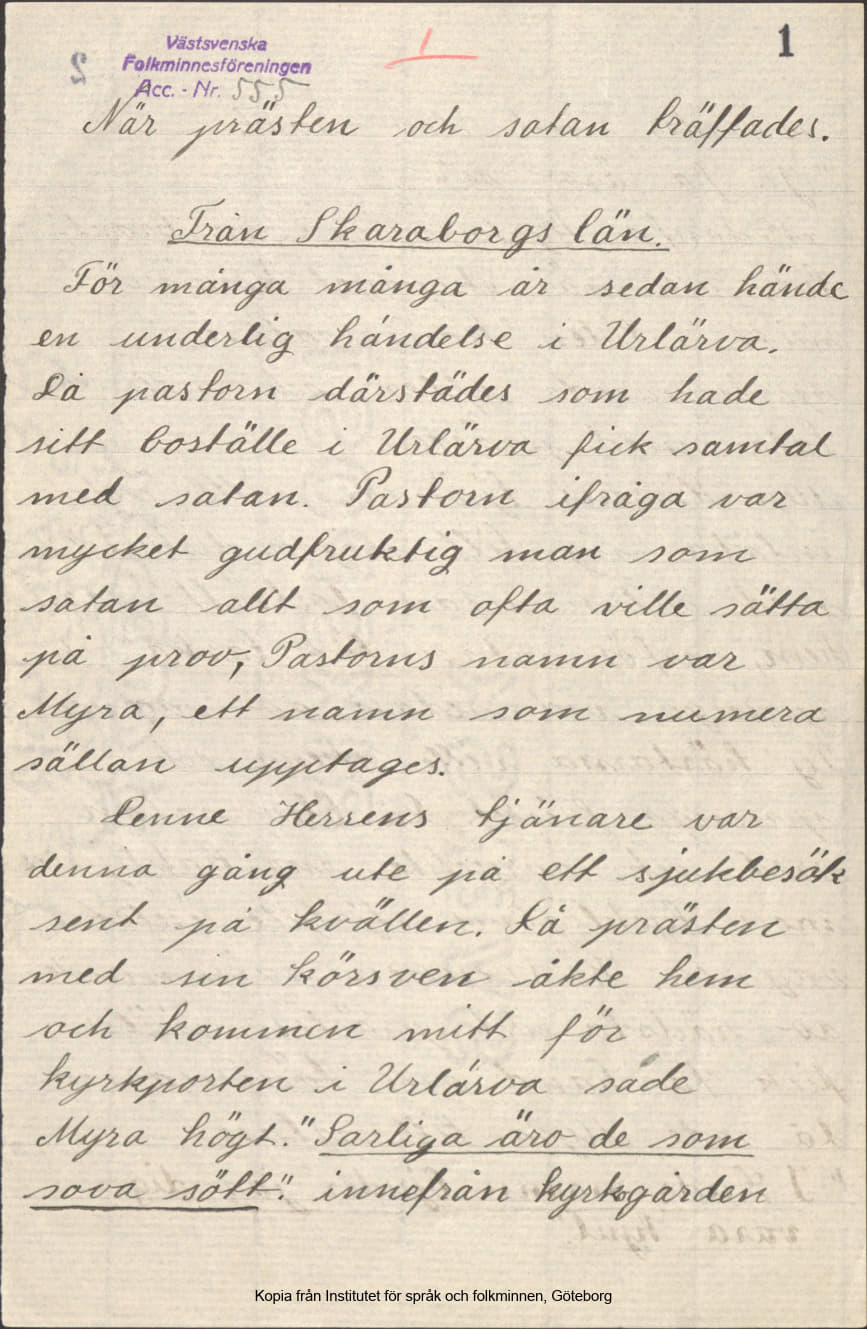 Västsvenska
Folkminnesföreningen
Acc. - Nr. 555
1
1
2
När prästen och satan träffades.
Från Skaraborgs län.
För många många år sedan hände
en underlig händelse i Urlärva.
Då pastorn därstädes som hade
sitt boställe i Urlärva fick samtal
med satan. Pastorn ifråga var
mycket gudfruktig man som
satan allt som ofta ville sätta
på prov, Pastorns namn var
Myra, ett namn som numera
sällan upptages.
Denne Herrens tjänare var
denna gång ute på ett sjukbesök
sent på kvällen. Då prästen
med sin körsven åkte hem
och kommen mitt för
kyrkporten i Urlärva sade
Myra högt." Sarliga äro de som
sova sött". innefrån kyrkogården
Kopia från Institutet för språk och folkminnen, Göteborg